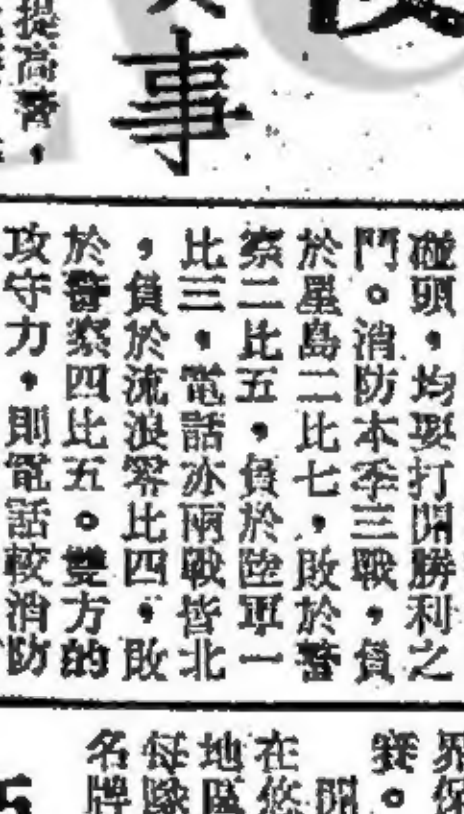 事
提高警，
碰頭，均要打開勝利之
門。消防本季三戰，負
於星島二比七，敗於警
察二比五，負於陸軍一
比三，電話亦兩戰皆北
，負於流浪零比四，敗
於警察四比五。雙方的
攻守力，則電話較消防
界保
賽。
開
在悠
地區
每隊
名牌